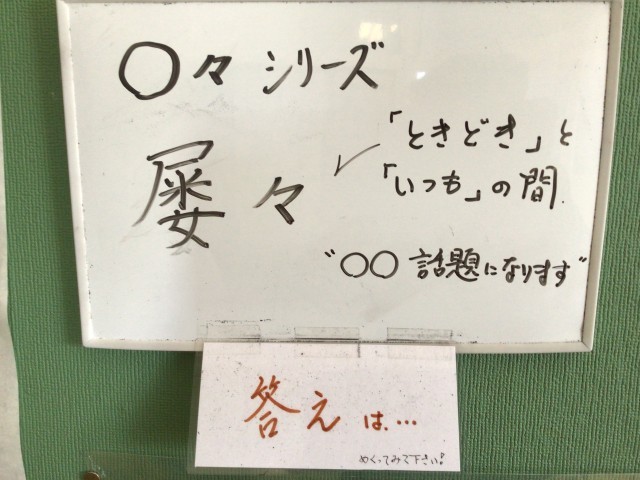 〇々シリーズ
屡々
「ときどき」と
「いつも」の間.
"〇〇 話題になります"
答えは…
めくってみて下さい!